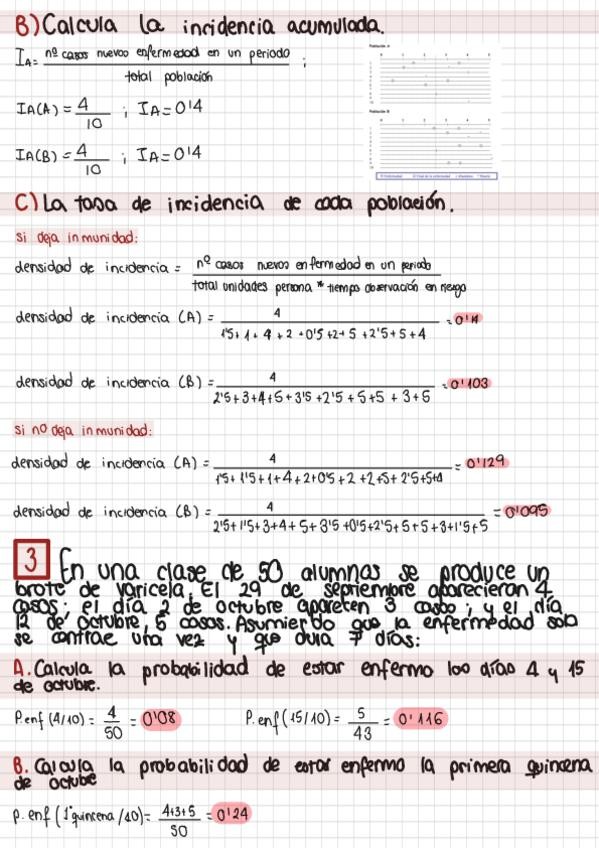 B) Calcula la incidencia acumulada.
IA = nº casos nuevos enfermedad en un periodo / total población ;
Población A
0 1 2 3 4 5
IA(A) = 4 / 10 ; IA = 0'4
Población B
0 1 2 3 4 5
IA(B) = 4 / 10 ; IA = 0'4
C) La tasa de incidencia de cada población.
si deja inmunidad:
densidad de incidencia = nº casos nuevos enfermedad en un periodo / total unidades persona * tiempo observación en riesgo
densidad de incidencia (A) = 4 / 1'5 + 1 + 4 + 2 + 0'5 + 2 + 5 + 2'5 + 5 + 4 = 0'14
densidad de incidencia (B) = 4 / 2'5 + 3 + 4 + 5 + 3'5 + 2'5 + 5 + 5 + 3 + 5 = 0'103
si no deja inmunidad:
densidad de incidencia (A) = 4 / 1'5 + 1'5 + 1 + 4 + 2 + 0'5 + 2 + 2 + 5 + 2'5 + 5 + 4 = 0'129
densidad de incidencia (B) = 4 / 2'5 + 1'5 + 3 + 4 + 5 + 3'5 + 0'5 + 2'5 + 5 + 5 + 3 + 1'5 + 5 = 0'095
3 En una clase de 50 alumnas se produce un
brote de varicela. El 29 de septiembre aparecieron 4
casos; el día 2 de octubre aparecen 3 casos; y el día
12 de octubre, 5 casos. Asumiendo que la enfermedad solo
se contrae una vez y que dura 7 días:
A. Calcula la probabilidad de estar enfermo los días 4 y 15
de octubre.
P.enf (4/10) = 4 / 50 = 0'08 P.enf (15/10) = 5 / 43 = 0'116
B. Calcula la probabilidad de estar enfermo la primera quincena
de octube
p.enf (1ª quincena /10) = 4+3+5 / 50 = 0'24